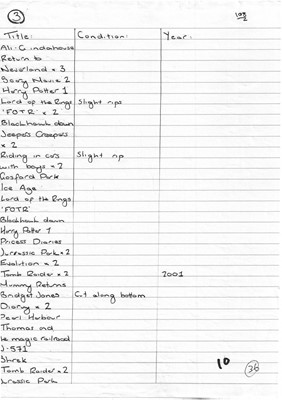 3
Title: Condition: Year:
Ali-G indahouse
Return to
Neverland × 3
Scary Movie 2
Harry Potter 1
Lord of the Rings Slight rips
'FOTR' × 2
Blackhawk down
Jeepers Creepers
× 2
Riding in cars Slight rip
with boys × 2
Gosford Park
Ice Age
Lord of the Rings
'FOTR'
Blackhawk down
Harry Potter 1
Pricess Diaries
Jurrassic Park × 2
Evolution × 2
Tomb Raider × 2 2001
Mummy Returns
Bridget Jones Cut along bottom
Diary × 2
Pearl Harbour
Thomas and
he magic railroad
U-571
Shrek 10
Tomb Raider × 2 36
urassic Park